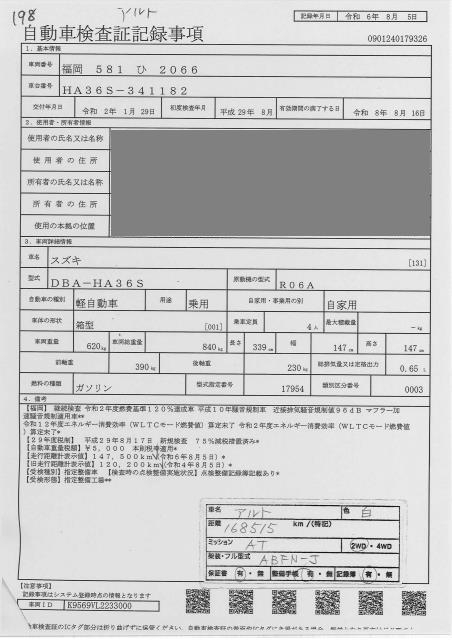 198 アルト
記録年月日 令和 6年 8月 5日
自動車検査証記録事項
0901240179326
1．基本情報
車両番号 福岡 581 ひ 2066
車台番号 HA36S-341182
交付年月日 令和 2年 1月 29日 初度検査年月 平成 29年 8月 有効期間の満了する日 令和 8年 8月 16日
2．使用者・所有者情報
使用者の氏名又は名称
使用者の住所
所有者の氏名又は名称
所有者の住所
使用の本拠の位置
3．車両詳細情報
車名 スズキ [131]
型式 DBA-HA36S 原動機の型式 R06A
自動車の種別 軽自動車 用途 乗用 自家用・事業用の別 自家用
車体の形状 箱型 [001] 乗車定員 4人 最大積載量 -kg
車両重量 620kg 車両総重量 840kg 長さ 339cm 幅 147cm 高さ 147cm
前軸重 390kg 後軸重 230kg 総排気量又は定格出力 0.65 L
燃料の種類 ガソリン 型式指定番号 17954 類別区分番号 0003
4．備考
【福岡】 継続検査 令和2年度燃費基準120%達成車 平成10年騒音規制車 近接排気騒音規制値96dB マフラー加
速騒音規制適用車**
令和12年度エネルギー消費効率（WLTCモード燃費値）算定未了 令和2年度エネルギー消費効率（WLTC モード燃費値
）算定未了*
【29年度税制】 平成29年8月17日 新規検査 75%減税措置済み*
【自動車重量税額】¥5,000 本則税率適用*
【走行距離計表示値】147,500km（令和6年8月5日）*
【旧走行距離計表示値】120,200km（令和4年8月5日）*
【受検種別】指定整備車 【検査時の点検整備実施状況】点検整備記録簿記載あり*
【受検形態】指定整備工場**
車名 アルト 色 白
距離 168515 km /(特記)
ミッション AT 2WD・4WD
架装・フル型式 ABFN-J
保証書 有・無 整備手帳 有・無 記録簿 有・無
【注意事項】
記録事項はシステム登録時点の情報となります
車両ID K9569VL2233000